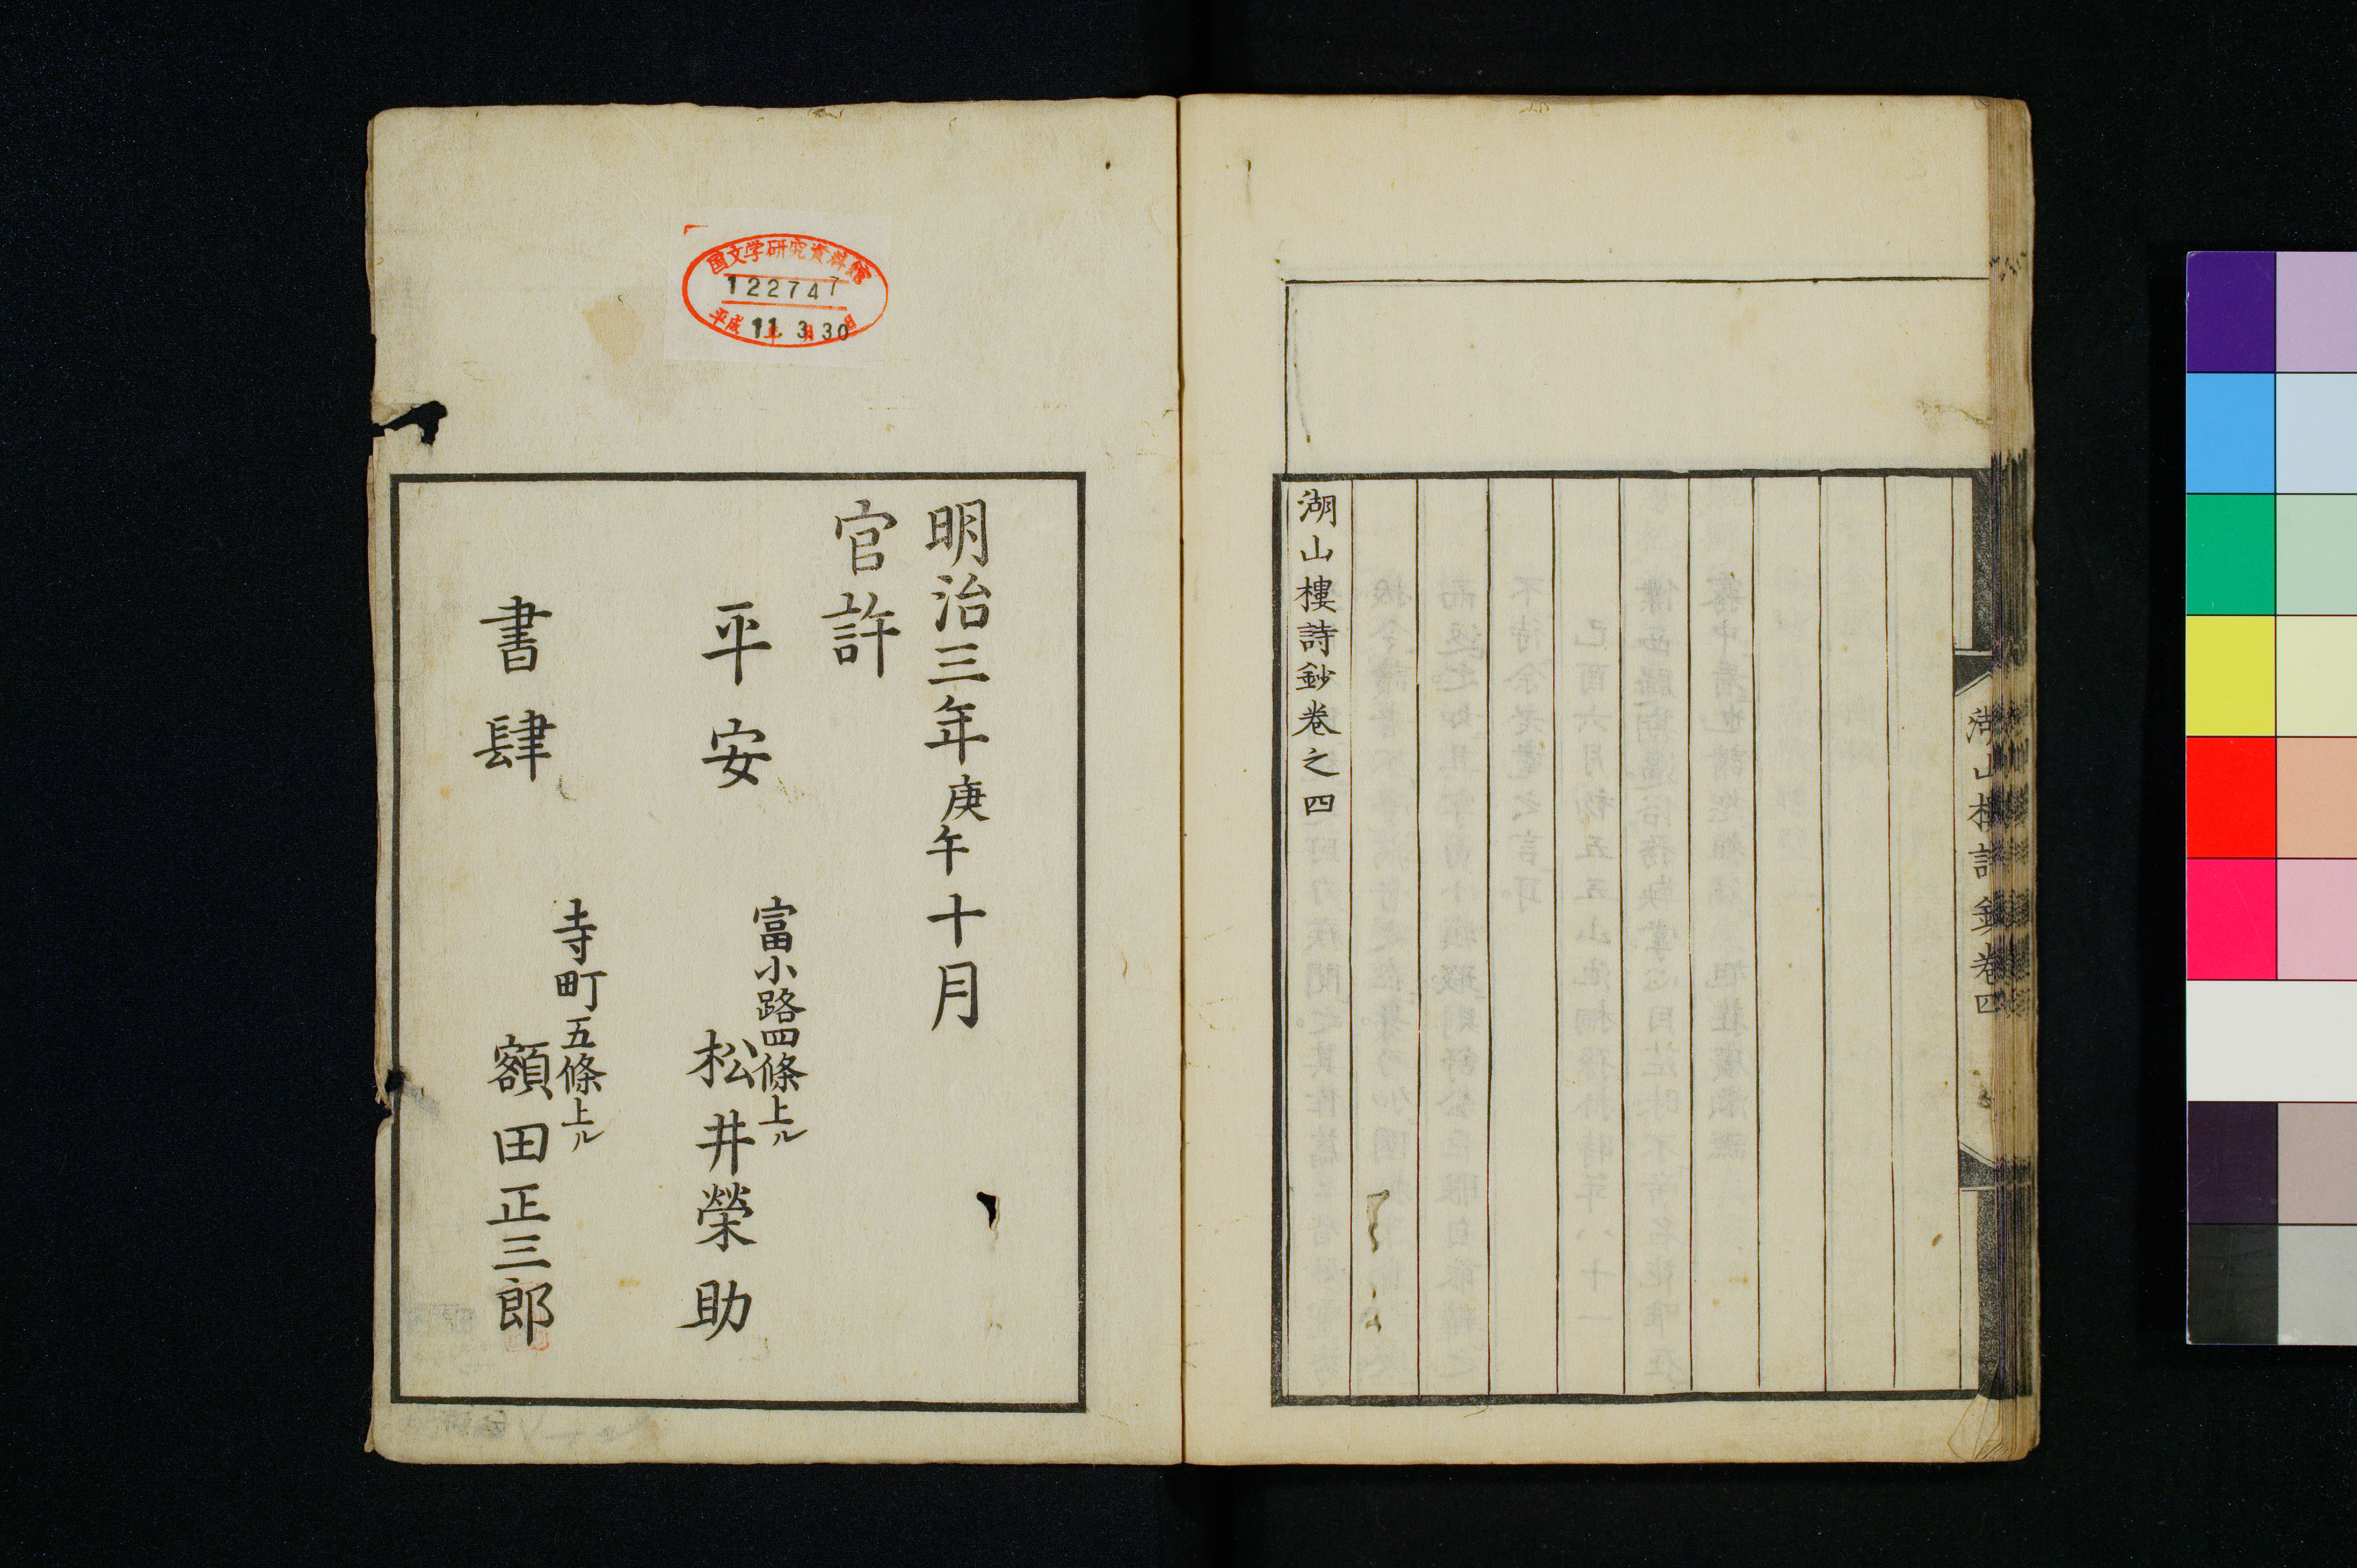 湖山樓詩鈔卷四
湖山樓詩鈔卷之四
国文学研究資料館
122747
平成11年3月30日
明治三年庚午十月
官許
平安
富小路四條上ル
松井榮助
書肆
寺町五條上ル
額田正三郎